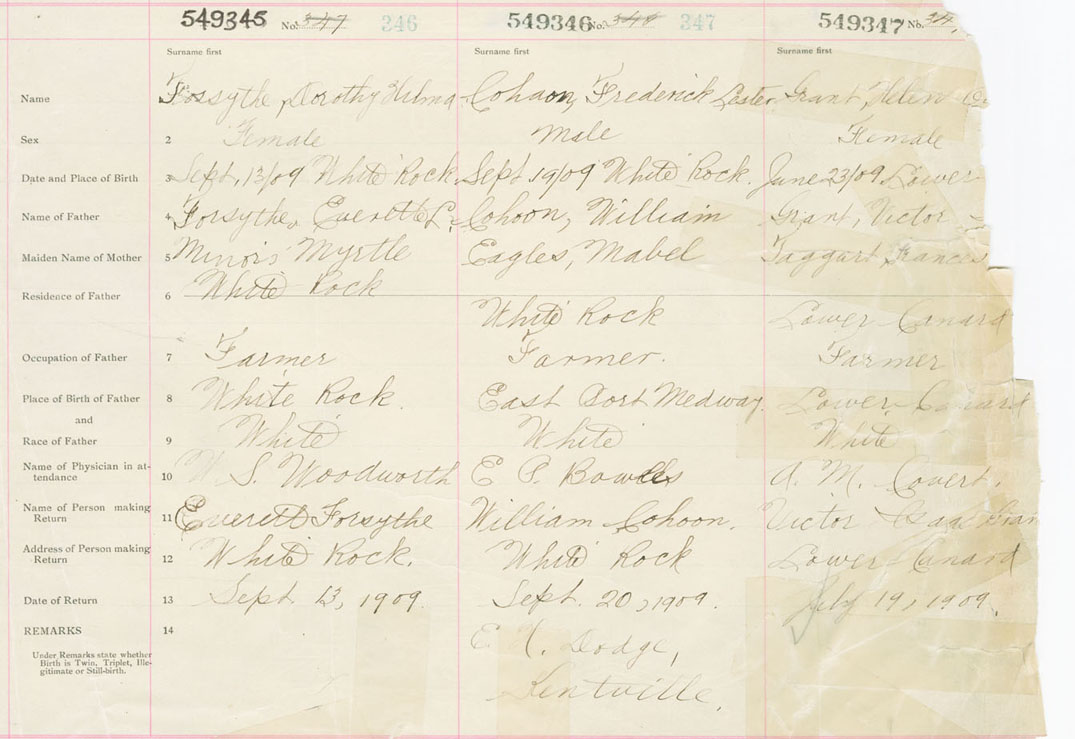 549345 No. 347 346 549346 No. 348 347 549347 No.
Surname first Surname first Surname first
Name Forsythe, Dorothy Hilma Cohoon, Frederick Lester Grant, Helen
Sex 2 Female Male Female
Date and Place of Birth 3 Sept. 13/09 White Rock. Sept 19/09 White Rock. June 23/09 Lower
Name of Father 4 Forsythe, Everett L. Cohoon, William Grant, Victor
Maiden Name of Mother 5 Myrtle Eagles, Mabel Taggart, Frances
Residence of Father 6 White Rock White Rock Lower Canard
Occupation of Father 7 Farmer Farmer. Farmer
Place of Birth of Father 8 White Rock. East Port Medway. Lower Canard
and
Race of Father 9 White White White
Name of Physician in at-
tendance 10 W. S. Woodworth E P. Bowles A. M. Covert.
Name of Person making
Return 11 Everett Forsythe William Cohoon. Victor
Address of Person making
Return 12 White Rock. White Rock Lower Canard
Date of Return 13 Sept. 13, 1909. Sept. 20, 1909. July 19, 1909.
REMARKS 14 E. Dodge,
Under Remarks state whether
Birth is Twin, Triplet, Ille-
gitimate or Still-birth.
Kentville.